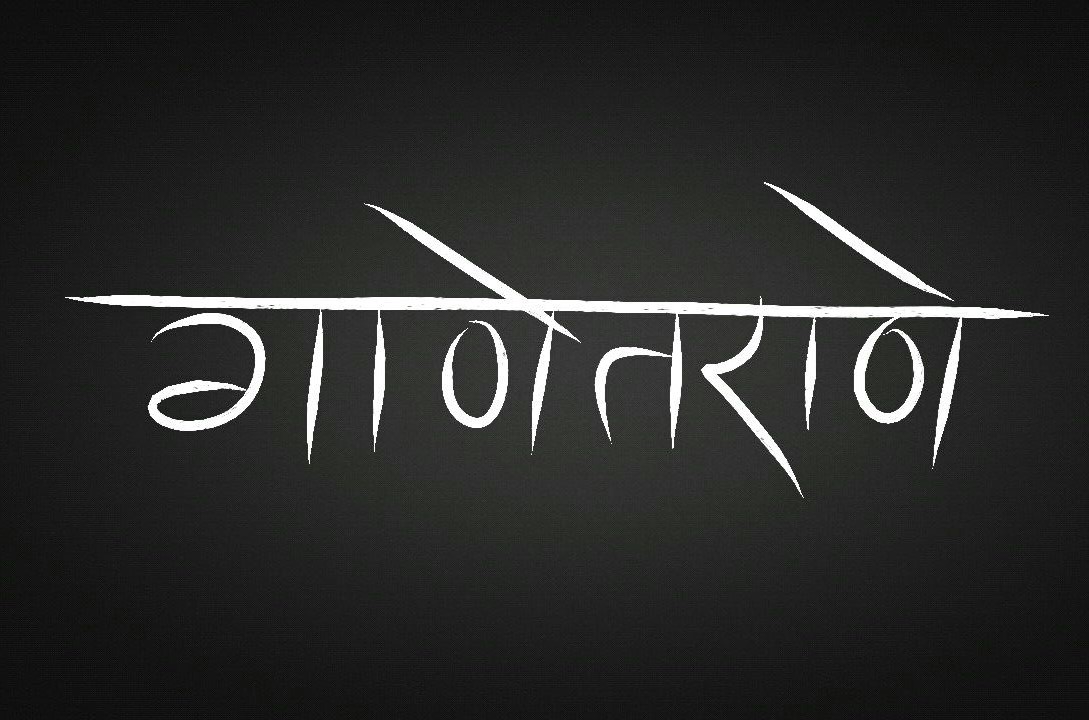 गाणेतराणे